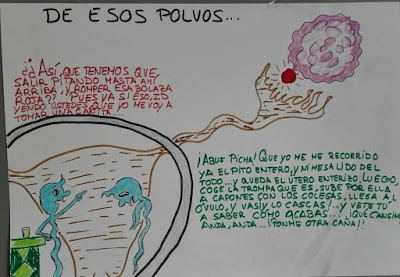 DE ESOS POLVOS...
¿¿ASÍ, QUE TENEMOS QUE
SALIR PITANDO HASTA AHÍ
ARRIBA, Y ROMPER ESA BOLAZA
ROJA?? PUES VA SI ESO, ID
YENDO USTEDES QUE YO ME VOY A
TOMAR UNA CAÑITA...
¡AQUE PICHA! QUE YO ME HE RECORRIDO
YA EL PITO ENTERO, Y NI ME SALIDO DEL
TODO... Y QUEDA EL ÚTERO ENTERIZO, LUEGO,
COGE LA TROMPA QUE ES, SUBE POR ELLA
A CAPONES CON LOS COLEGAS, LLEGA AL
ÓVULO, Y VAS Y LO CASCAS!... Y VETE TÚ
A SABER CÓMO ACABAS... ¡QUÉ CANSINO
ANDA, ANDA... ¡PONME OTRA CAÑA!!